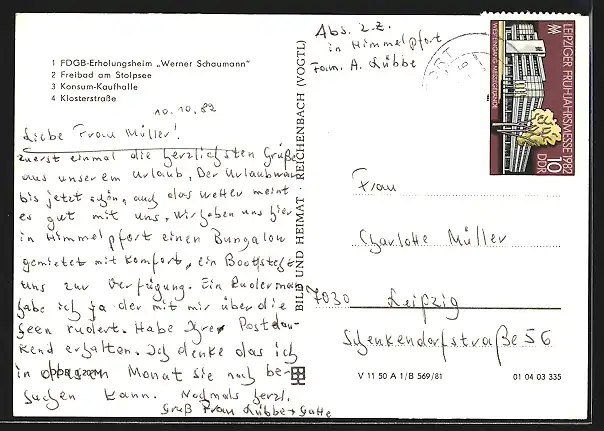 1 FDGB-Erholungsheim „Werner Schaumann"
2 Freibad am Stolpsee
3 Konsum-Kaufhalle
4 Klosterstraße
10.10.82
Liebe Frau Müller!
zuerst einmal die herzlichsten Grüße
aus unserem Urlaub, Der Urlaub war
bis jetzt schön, auch das wetter meint
es gut mit uns, wir haben uns hier
in Himmelpfort einen Bungalow
gemietet mit Komfort, ein Bootsteg
uns zur Verfügung. Ein Ruderman
habe ich ja der mit mir über die
Seen rudert. Habe Ihre Postdan-
kend erhalten. Ich denke das ich
in diesem Monat sie noch be-
suchen kann. Nochmals herzl.
Gruß Frau Lübbe + Gatte
BILD UND HEIMAT · REICHENBACH (VOGTL)
Abs. z.Z.
in Himmelpfort
Fam. A. Lübbe
LEIPZIGER FRÜHJAHRSMESSE 1982
WESTEINGANG MESSEGELÄNDE
10
DDR
Frau
Charlotte Müller
7030 Leipzig
Schenkendorfstraße 56
V 11 50 A 1/B 569/81
01 04 03 335